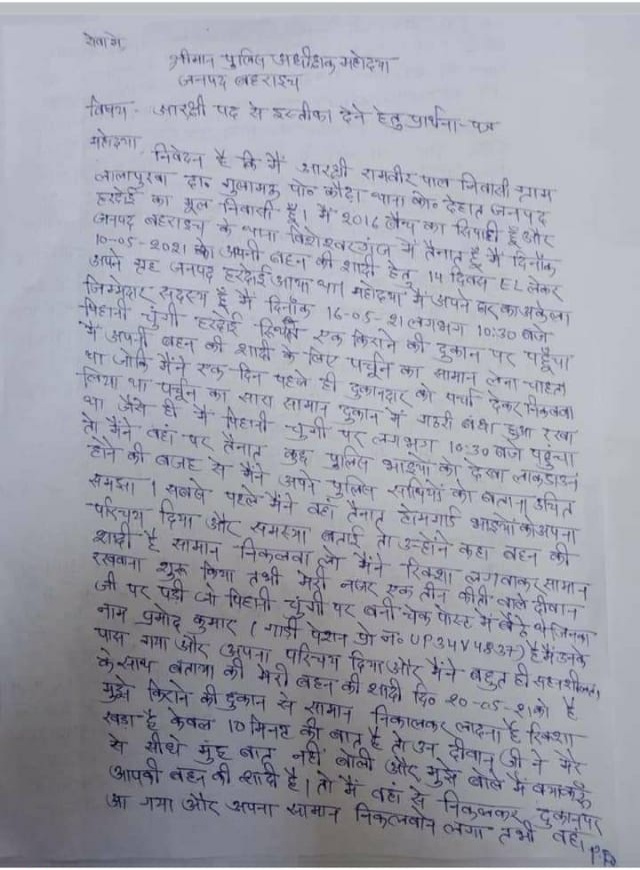 सेवा में,
श्रीमान पुलिस अधीक्षक महोदया
जनपद बहराइच
विषय - आरक्षी पद से इस्तीफा देने हेतु प्रार्थना-पत्र
महोदया
निवेदन है कि मैं आरक्षी रामवीर पाल निवासी ग्राम
लालापुरवा पो० कौढा थाना को० देहात जनपद
हरदोई का मूल निवासी हूँ। मैं 2016 बैच का सिपाही हूँ और
जनपद बहराइच के थाना विशेश्वरगंज में तैनात हूँ मैं दिनाँक
10-05-2021 को अपनी बहन की शादी हेतु 14 दिवस EL लेकर
अपने गृह जनपद हरदोई आया था। महोदया मैं अपने घर का अकेला
जिम्मेदार सदस्य हूँ मैं दिनाँक 16-05-21 लगभग 10:30 बजे
पिहानी चुंगी हरदोई स्थित एक किराने की दुकान पर पहुँचा
मैं अपनी बहन की शादी के लिए पर्चून का सामान लेना चाहता
था जोकि मैंने एक दिन पहले ही दुकानदार को पर्चा देकर निकलवा
लिया था पर्चून का सारा सामान दुकान में गठरी बंधा हुआ रखा
था जैसे ही मैं पिहानी चुंगी पर लगभग 10:30 बजे पहुंचा
तो मैंने वहां पर तैनात कुछ पुलिस भाइयों को देखा लाकडाउन
होने की वजह से मैंने अपने पुलिस साथियों को बताना उचित
समझा। सबसे पहले मैंने वहां तैनात होमगार्ड भाइयों को अपना
परिचय दिया और समस्या बताई तो उन्होंने कहा बहन की
शादी है सामान निकलवा लो मैंने रिक्शा लगवाकर सामान
रखवाना शुरू किया तभी मेरी नजर एक तीन फीती वाले दीवान
जी पर पड़ी जो पिहानी चुंगी पर बनी चेक पोस्ट में बैठे थे जिनका
नाम प्रमोद कुमार (गाड़ी पेशन प्रो नं० UP34V4837) है मैं उनके
पास गया और अपना परिचय दिया और मैंने बहुत ही सहनशीलता
के साथ बताया की मेरी बहन की शादी दि० 20-05-21 को है
मुझे किराने की दुकान से सामान निकालकर लादना है रिक्शा
खड़ा है केवल 10 मिनट की बात है तो उन दीवान जी ने मेरे
से सीधे मुंह बात नहीं बोली और मुझे बोले मैं क्या करूँ
आपकी बहन की शादी है। तो मैं वहां से निकलकर दुकान पर
आ गया और अपना सामान निकलवाने लगा तभी वहां